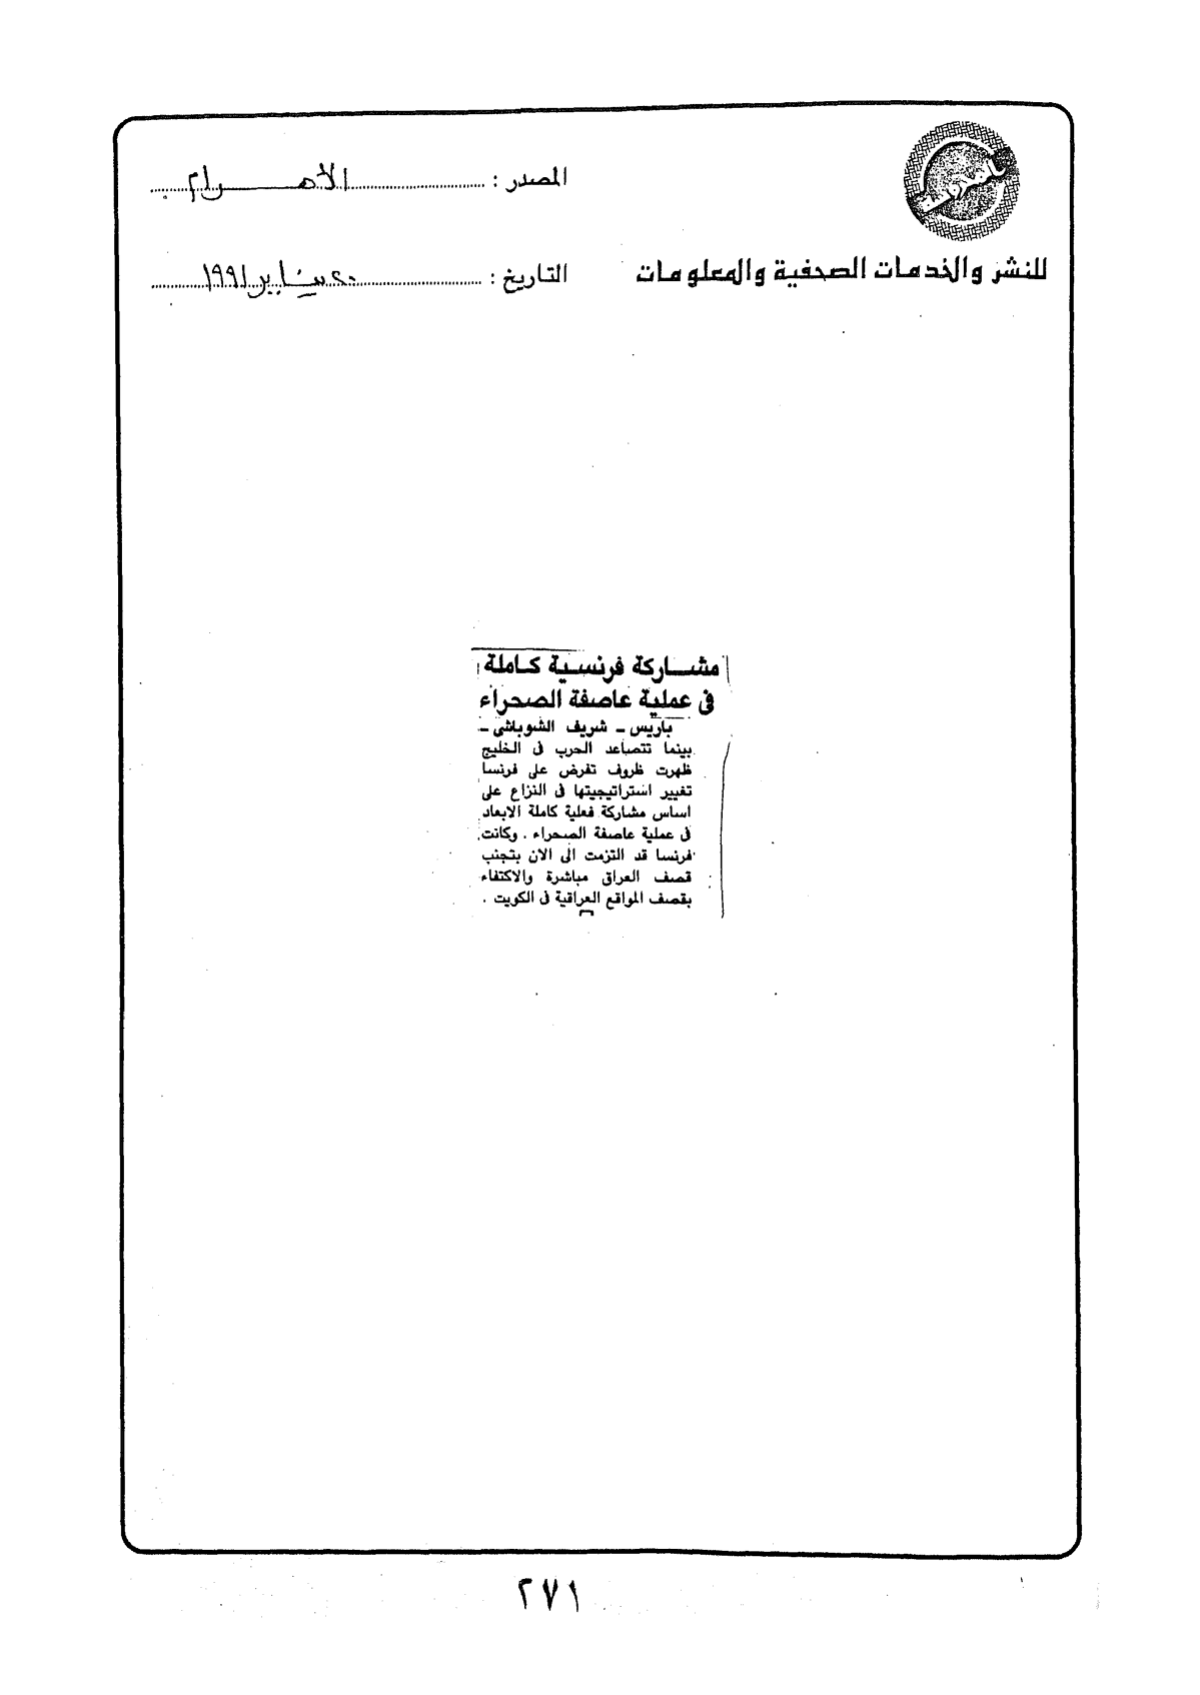 المصدر : الأهـــرام
للنشر والخدمات الصحفية والمعلومات
التاريخ : ٢٠ يناير ١٩٩١
مشـــاركة فرنسـية كـاملة
فى عملية عاصفة الصحراء
باريس ــ شريف الشوباشى ــ
بينما تتصاعد الحرب فى الخليج
ظهرت ظروف تفرض على فرنسا
تغيير استراتيجيتها فى النزاع على
اساس مشاركة فعلية كاملة الابعاد
فى عملية عاصفة الصحراء . وكانت
فرنسا قد التزمت الى الان بتجنب
قصف العراق مباشرة والاكتفاء
بقصف المواقع العراقية فى الكويت .
٢٧١